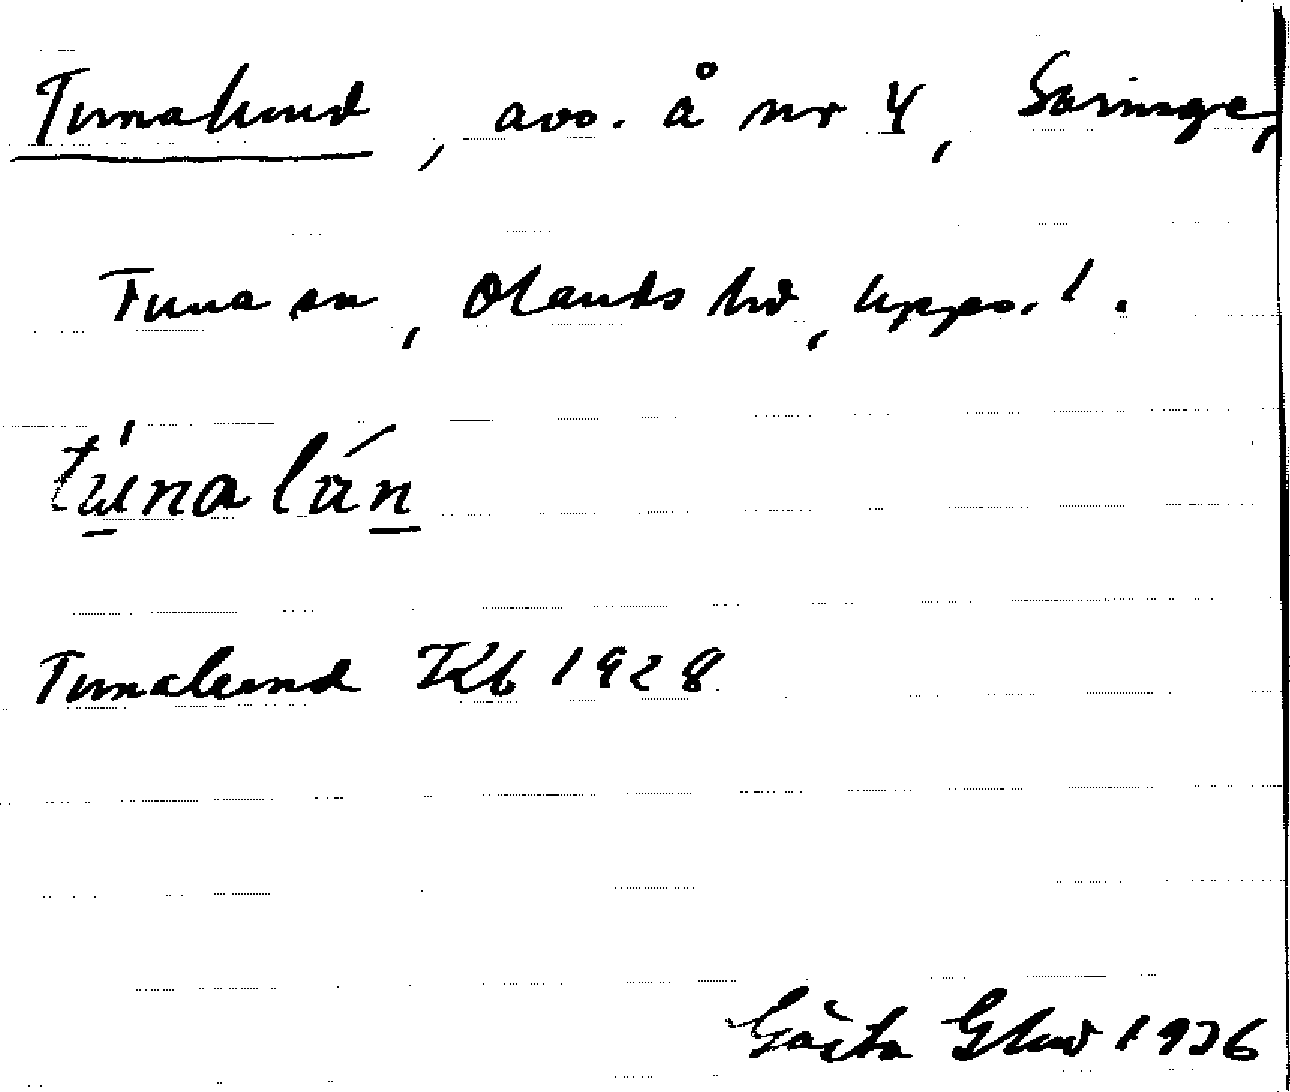 Tunalund, avs. å nr 4, Saringe,
Tuna sn, Olands hd, Upps. l.
Tunalund Kb 1928
Gösta 1936